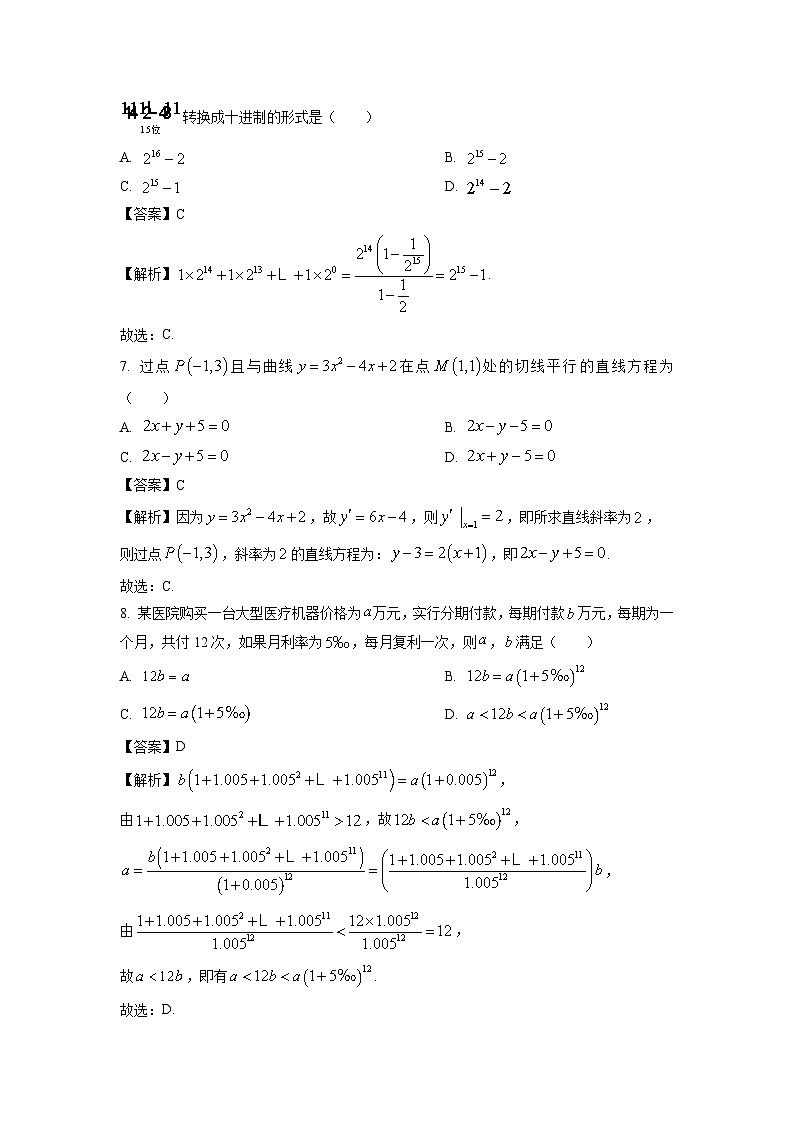 111L 11 转换成十进制的形式是（　　）
15位
A. 2^16 − 2　　B. 2^15 − 2
C. 2^15 − 1　　D. 2^14 − 2
【答案】C
【解析】1×2^14 + 1×2^13 + L + 1×2^0 = 2^14(1 − 1/2^15) / (1 − 1/2) = 2^15 − 1.
故选：C.
7. 过点 P(−1,3) 且与曲线 y = 3x^2 − 4x + 2 在点 M(1,1) 处的切线平行的直线方程为
（　　）
A. 2x + y + 5 = 0　　B. 2x − y − 5 = 0
C. 2x − y + 5 = 0　　D. 2x + y − 5 = 0
【答案】C
【解析】因为 y = 3x^2 − 4x + 2，故 y′ = 6x − 4，则 y′|x=1 = 2，即所求直线斜率为 2，
则过点 P(−1,3)，斜率为 2 的直线方程为：y − 3 = 2(x + 1)，即 2x − y + 5 = 0.
故选：C.
8. 某医院购买一台大型医疗机器价格为 a 万元，实行分期付款，每期付款 b 万元，每期为一
个月，共付 12 次，如果月利率为 5‰，每月复利一次，则 a，b 满足（　　）
A. 12b = a　　B. 12b = a(1 + 5‰)^12
C. 12b = a(1 + 5‰)　　D. a < 12b < a(1 + 5‰)^12
【答案】D
【解析】b(1 + 1.005 + 1.005^2 + L + 1.005^11) = a(1 + 0.005)^12，
由 1 + 1.005 + 1.005^2 + L + 1.005^11 > 12，故 12b < a(1 + 5‰)^12，
a = b(1 + 1.005 + 1.005^2 + L + 1.005^11) / (1 + 0.005)^12 = ((1 + 1.005 + 1.005^2 + L + 1.005^11) / 1.005^12)b，
由 (1 + 1.005 + 1.005^2 + L + 1.005^11) / 1.005^12 < 12×1.005^12 / 1.005^12 = 12，
故 a < 12b，即有 a < 12b < a(1 + 5‰)^12.
故选：D.